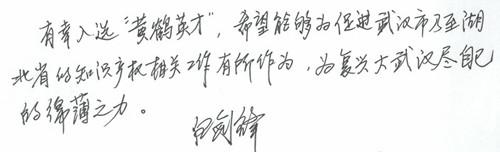 有幸入选“黄鹤英才”，希望能够为促进武汉市乃至湖
北省的知识产权相关工作有所作为，为复兴大武汉尽自己
的绵薄之力。
剑锋